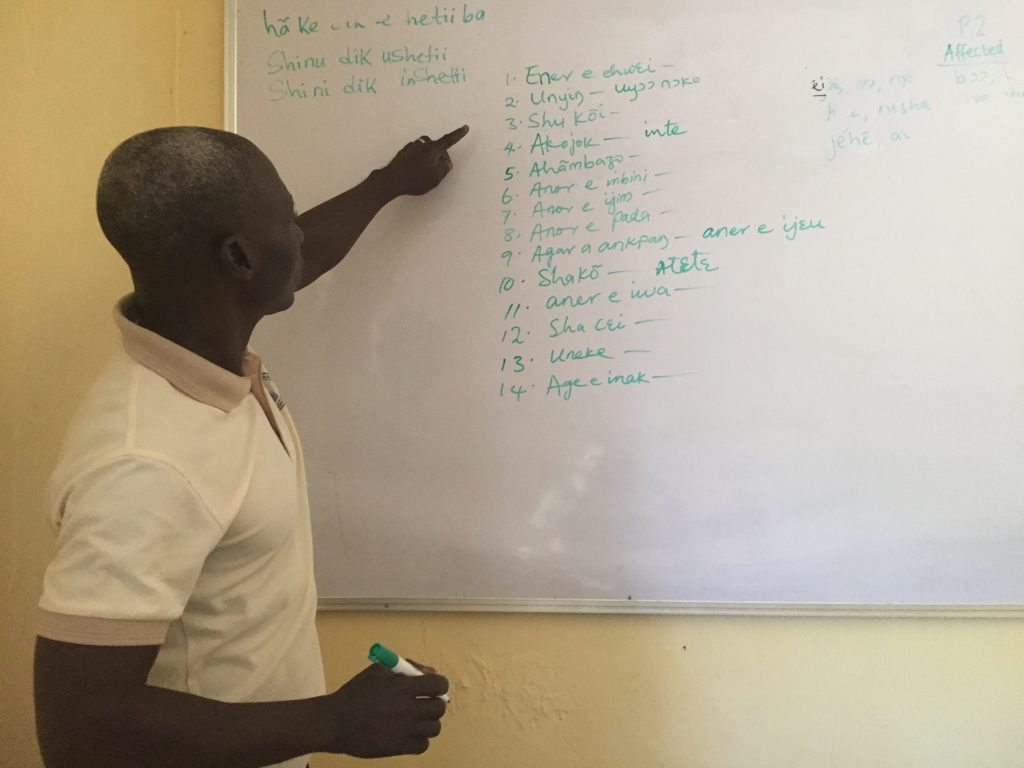 hã ke e hetii bo
Shinu dik ushetii
Shini dik inshetii
1. Ener e chwɛi –
2. Unyiŋ – uyɔɔ nɔkɔ
3. Shu Kõi –
4. Akojok — inte
5. Ahãmbazo –
6. Anor e inbini –
7. Anor e ijim –
8. Anor e pada –
9. Agar a ankpaŋ – aner e ijeu
10. Shakõ — Atɛtɛ
11. aner e iwa —
12. Sha cɛi —
13. Uneke —
14. Age e inak —
P2
Affected
rusha
jẽhẽ,